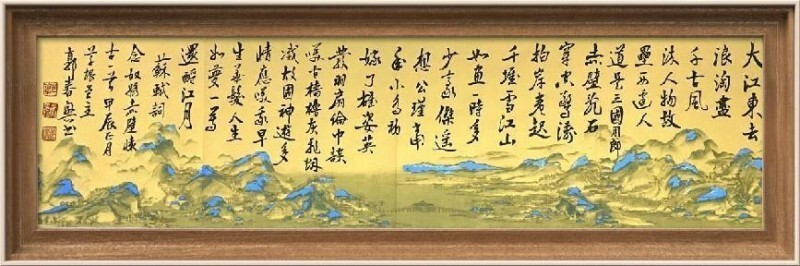 大江東去
浪淘盡
千古風
流人物故
壘西邊人
道是三國周郎
赤壁亂石
穿空驚濤
拍岸卷起
千堆雪江山
如畫一時多
少豪傑遙
想公瑾當
年小喬初
嫁了雄姿英
發羽扇綸巾談
笑古檣櫓灰飛烟
滅故國神遊多
情應笑我早
生華髮人生
如夢一尊
還酹江月
蘇軾詞
念奴嬌赤壁懷
古一首甲辰正月
堂主
郭春